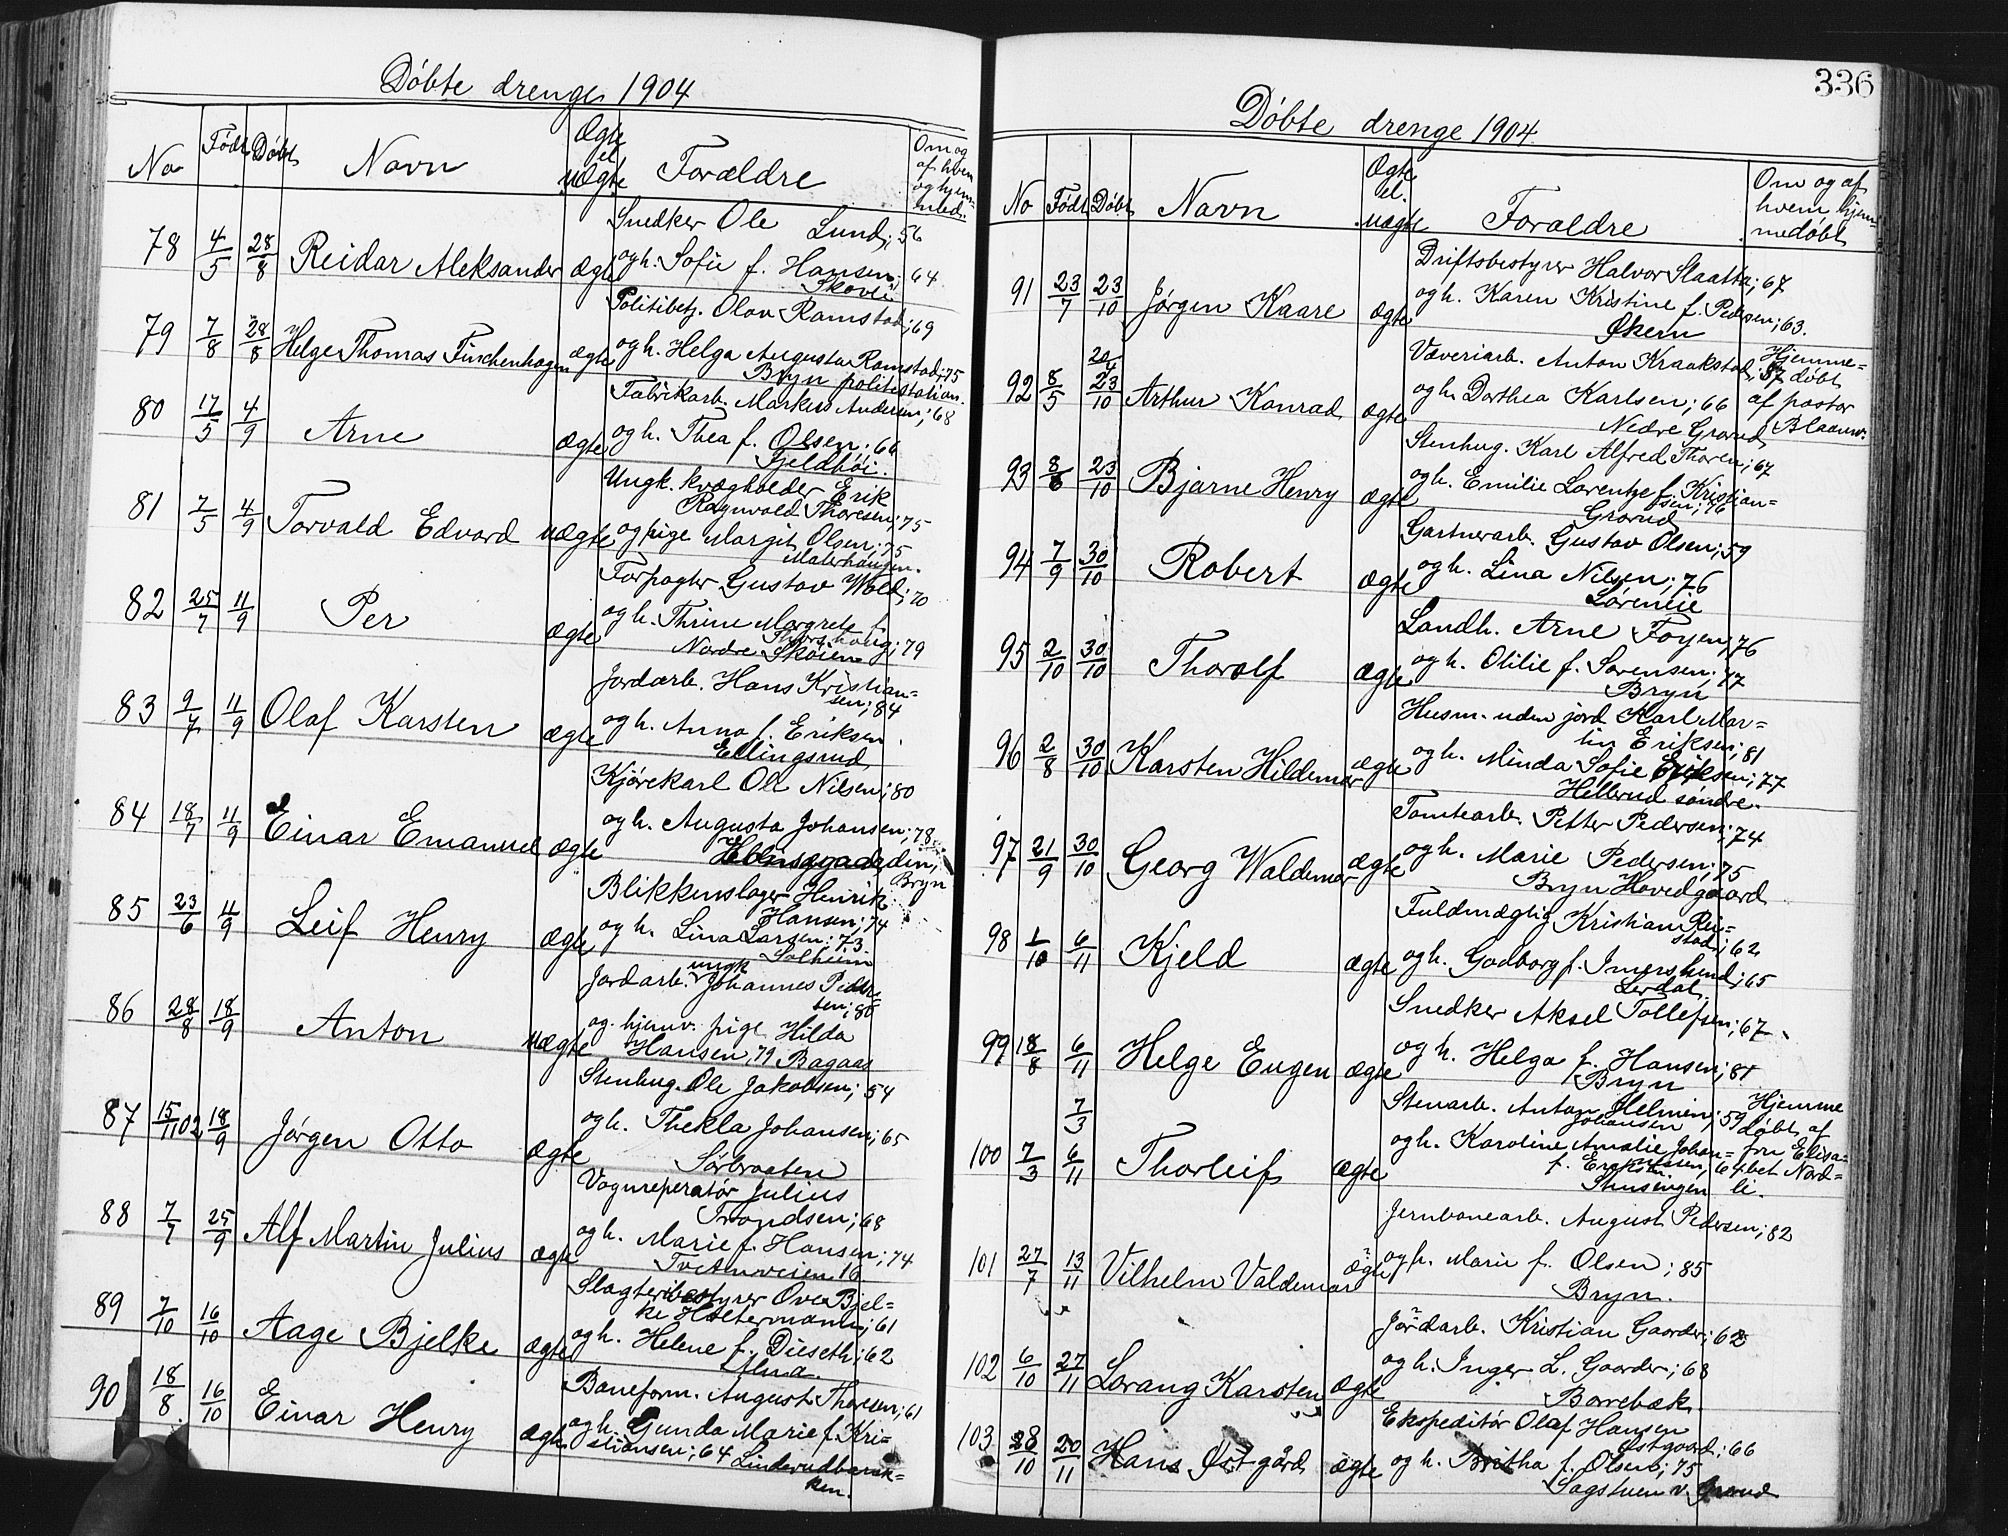 Døbte drenge 1904
No Født Døbt Navn Ægte el. uægte Forældre Om og af hvem og hjem- med.
78 4/5 28/8 Reidar Aleksander ægte Snedker Ole Lund; 56
og h. Sofie f. Hansen; 64
79 7/8 28/8 Helge Thomas Finckenhagen ægte Politibetj. Olav Ramstad; 69
og h. Helga Augusta Ramstad; 75
Bryn politistation.
80 17/5 4/9 Arne ægte Fabrikarb. Markus Andersen; 68
og h. Thea f. Olsen; 66
Fjeldhøi.
81 7/5 4/9 Torvald Edvard uægte Ungk. kvægholder Erik
Ragnvald Thoresen; 75
og pige Margit Olsen; 75
82 25/7 11/9 Per ægte Forpagter Gustav Wold; 70
og h. Thrine Margrete f.
Thorshaug; 79
Nordre Skøien
83 9/7 11/9 Olaf Karsten ægte Jordarb. Hans Kristian=
sen; 84
og h. Anna f. Eriksen
Ellingsrud
84 18/7 11/9 Einar Emanuel ægte Kjørekarl Ole Nilsen; 80
og h. Augusta Johansen; 78
Bryn
85 23/6 11/9 Leif Henry ægte Blikkenslager Henrik
Hansen; 74
og h. Lina Larsen; 73
Solheim
86 28/8 18/9 Anton uægte Jordarb. ungk. Johannes Peder=
sen; 80
og hjemv. pige Hilda
Hansen, 79 Bagaas
87 15/11 02 18/9 Jørgen Otto ægte Stenhug. Ole Jakobsen; 54
og h. Thekla Johansen; 65
Sørbraaten
88 7/7 25/9 Alf Martin Julius ægte Vognreperatør Julius
Trondsen; 68
og h. Marie f. Hansen; 74
Tvetenveien 16
89 7/10 16/10 Aage Bjelke ægte Slagteribestyrer Ove Bjel=
ke Haltermann; 61
og h. Helene f. Dieseth; 62
Alna.
90 18/8 16/10 Einar Henry ægte Baneform. August Thoresen; 61
og h. Gunda Marie f. Kri=
stiansen; 64 Linderudbak=
ken.
336
Døbte drenge 1904.
No Født Døbt Navn Ægte el. uægte Forældre Om og af hvem hjem- medøbt
91 23/7 23/10 Jørgen Kaare ægte Driftsbestyrer Halvor Slaatta; 67
og h. Karen Kristine f. Pedersen; 63.
Økern
92 8/5 20/4 23/10 Arthur Konrad ægte Væveriarb. Anton Kraakstad; 87 Hjemme=
døbt
og h. Dorthea Karlsen; 66 af pastor
Nedre Grorud Blauw.
93 8/6 23/10 Bjarne Henry ægte Stenhug. Karl Alfred Thoren; 67
og h. Emilie Lorentze f. Kristian=
sen; 76
Grorud
94 7/9 30/10 Robert ægte Gartnerarb. Gustav Olsen; 59
og h. Lina Nilsen; 76
Løreneie
95 2/10 30/10 Thorolf ægte Landh. Arne Foyen; 76
og h. Otilie f. Sørensen; 77
Bryn
96 2/8 30/10 Karsten Hildemar ægte Husm. uden jord Karl Mar=
tin Eriksen; 81
og h. Minda Sofie Eriksen; 77
Hellerud søndre.
97 21/9 30/10 Georg Waldemar ægte Tomtearb. Petter Pedersen; 74
og h. Marie Pedersen; 75
Bryn Hovedgaard
98 1/10 6/11 Kjeld ægte Fuldmægtig Kristian Rei=
stad; 62
og h. Godborg f. Imerslund; 65
Lerdal
99 18/8 6/11 Helge Eugen ægte Snedker Aksel Tollefsen; 67
og h. Helga f. Hansen; 81
Bryn
100 7/3 7/3 6/11 Thorleif ægte Stenarb. Anton Helmer Johansen; 59 Hjemme
døbt af
og h. Karoline Amalie Johan= fru Elisa=
sen f. Eriksen, 64 bet Nord=
Stusengen li.
101 27/7 13/11 Vilhelm Valdemar ægte Jernbanearb. August Pedersen; 82
og h. Marie f. Olsen; 85
Bryn.
102 6/10 27/11 Lorang Karsten ægte Jordarb. Kristian Gaarder; 62
og h. Inger L. Gaarder; 68
Borrebæk.
103 28/10 20/11 Hans Østgård ægte Ekspeditør Olaf Hansen
Østgaard; 66
og h. Britha f. Olsen; 75
Sagstuen v. Grorud